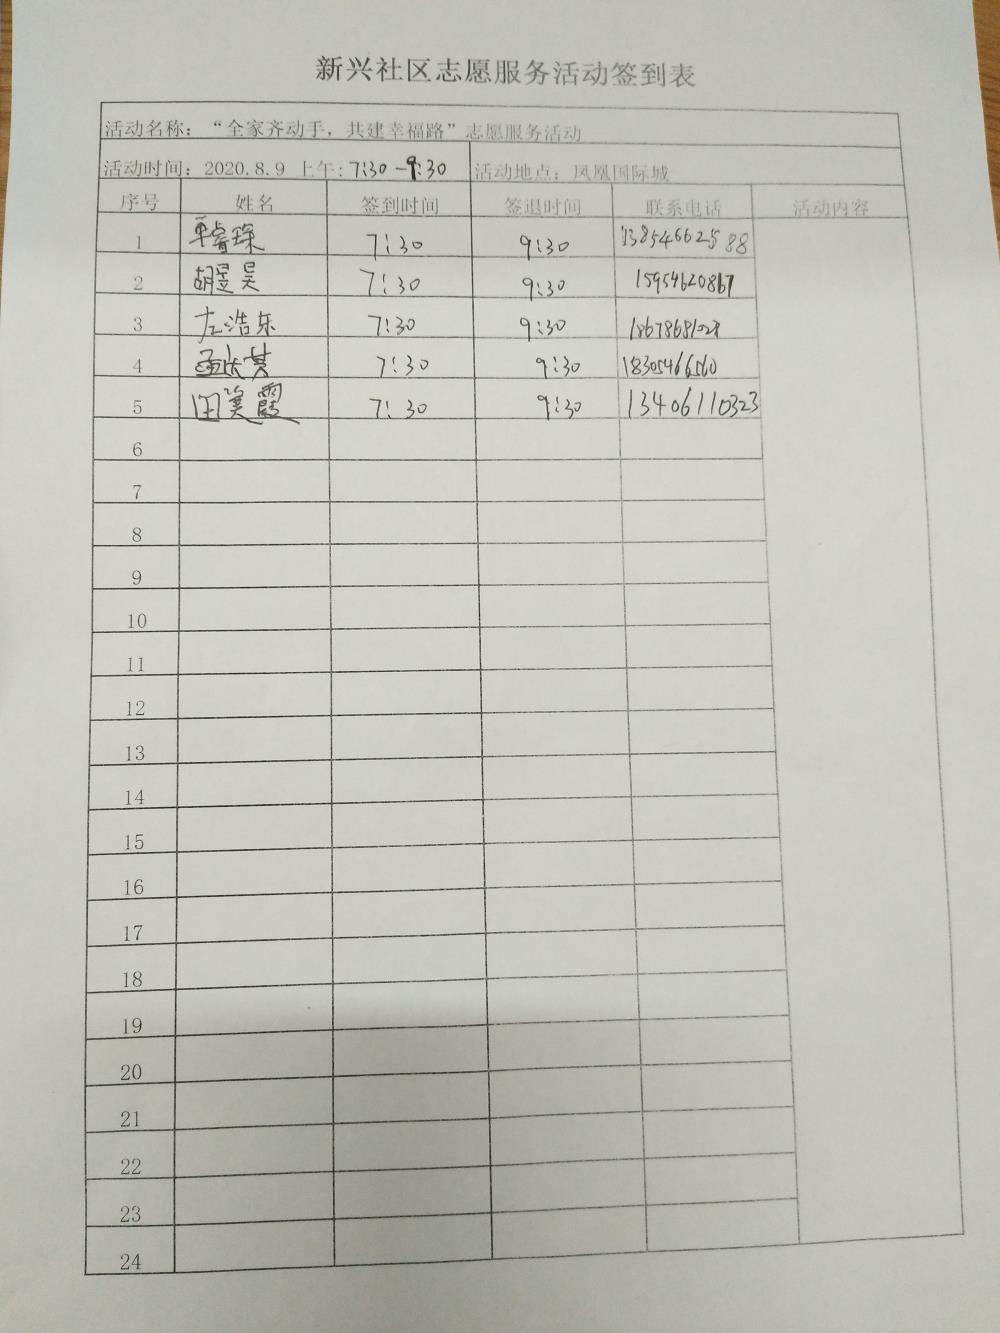 新兴社区志愿服务活动签到表
活动名称：“全家齐动手，共建幸福路”志愿服务活动
活动时间：2020.8.9 上午：7:30-9:30 活动地点：凤凰国际城
序号 姓名 签到时间 签退时间 联系电话 活动内容
1 睿琛 7:30 9:30 13854662588
2 胡昱昊 7:30 9:30 15954620867
3 左浩东 7:30 9:30
4 7:30 9:30 18305466560
5 田美霞 7:30 9:30 13406110323
6
7
8
9
10
11
12
13
14
15
16
17
18
19
20
21
22
23
24